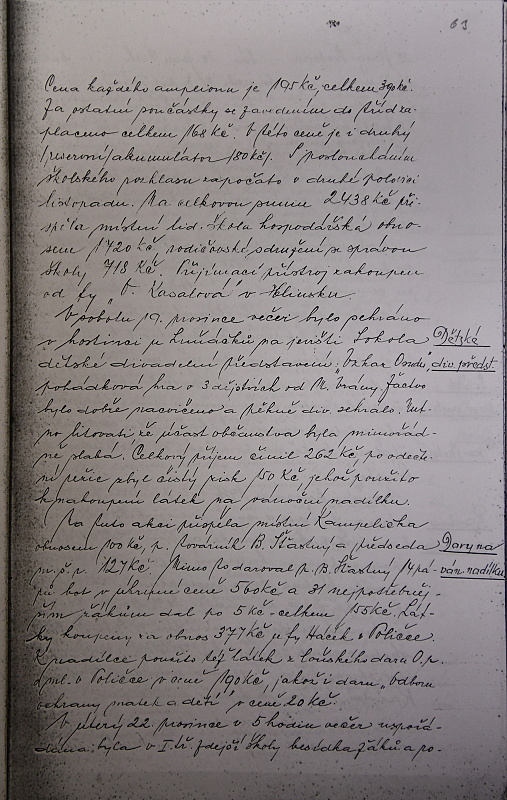 63
Cena každého amplionu je 195 Kč, celkem 390 Kč.
Za ostatní součástky se zavedením do tříd za-
placeno celkem 168 Kč. V této ceně je i druhý
/reservní/ akumulátor /80 Kč/. S posloucháním
školského rozhlasu započato v druhé polovici
listopadu. Na celkovou sumu 2438 Kč při-
spěla místní lid. škola hospodářská obno-
sem 1720 Kč, rodičovské sdružení se správou
školy 718 Kč. Přijímací přístroj zakoupen
od fy „ Kasalová" v Hlinsku.
V sobotu 19. prosince večer bylo sehráno
v hostinci u na jevišti Sokola Dětské
dětské divadelní představení, „ div. předst.
pohádková hra o 3 dějstvích od M. Vrány. Žactvo
bylo dobře nacvičeno a pěkně div. sehrálo. Nut-
no litovati, že účast občanstva byla mimořád-
ně slabá. Celkový příjem činil 262 Kč, po odečt
ní režie zbyl čistý zisk 150 Kč, jehož použito
k nakoupení látek na vánoční nadílku.
Na tuto akci přispěla místní Kampelička
obnosem 100 Kč, p. továrník B. Šťastný a předseda Dary na
m. š. r. 127 Kč. Mimo to daroval p. B. Šťastný 14 pá- ván. nadílku
rů bot v úhrnné ceně 560 Kč a 31 nejpotřebněj-
ším žákům dal po 5 Kč - celkem 155 Kč. Lát-
ky koupeny za obnos 377 Kč u fy Háček v Poličce.
K nadílce použito též látek z loňského daru O. p.
v Poličce v ceně 190 Kč, jakož i daru „Odboru
ochrany matek a dětí" v ceně 20 Kč.
V úterý 22. prosince v 5 hodin večer uspořá-
dána byla v I. tř. zdejší školy besídka žáků a po-